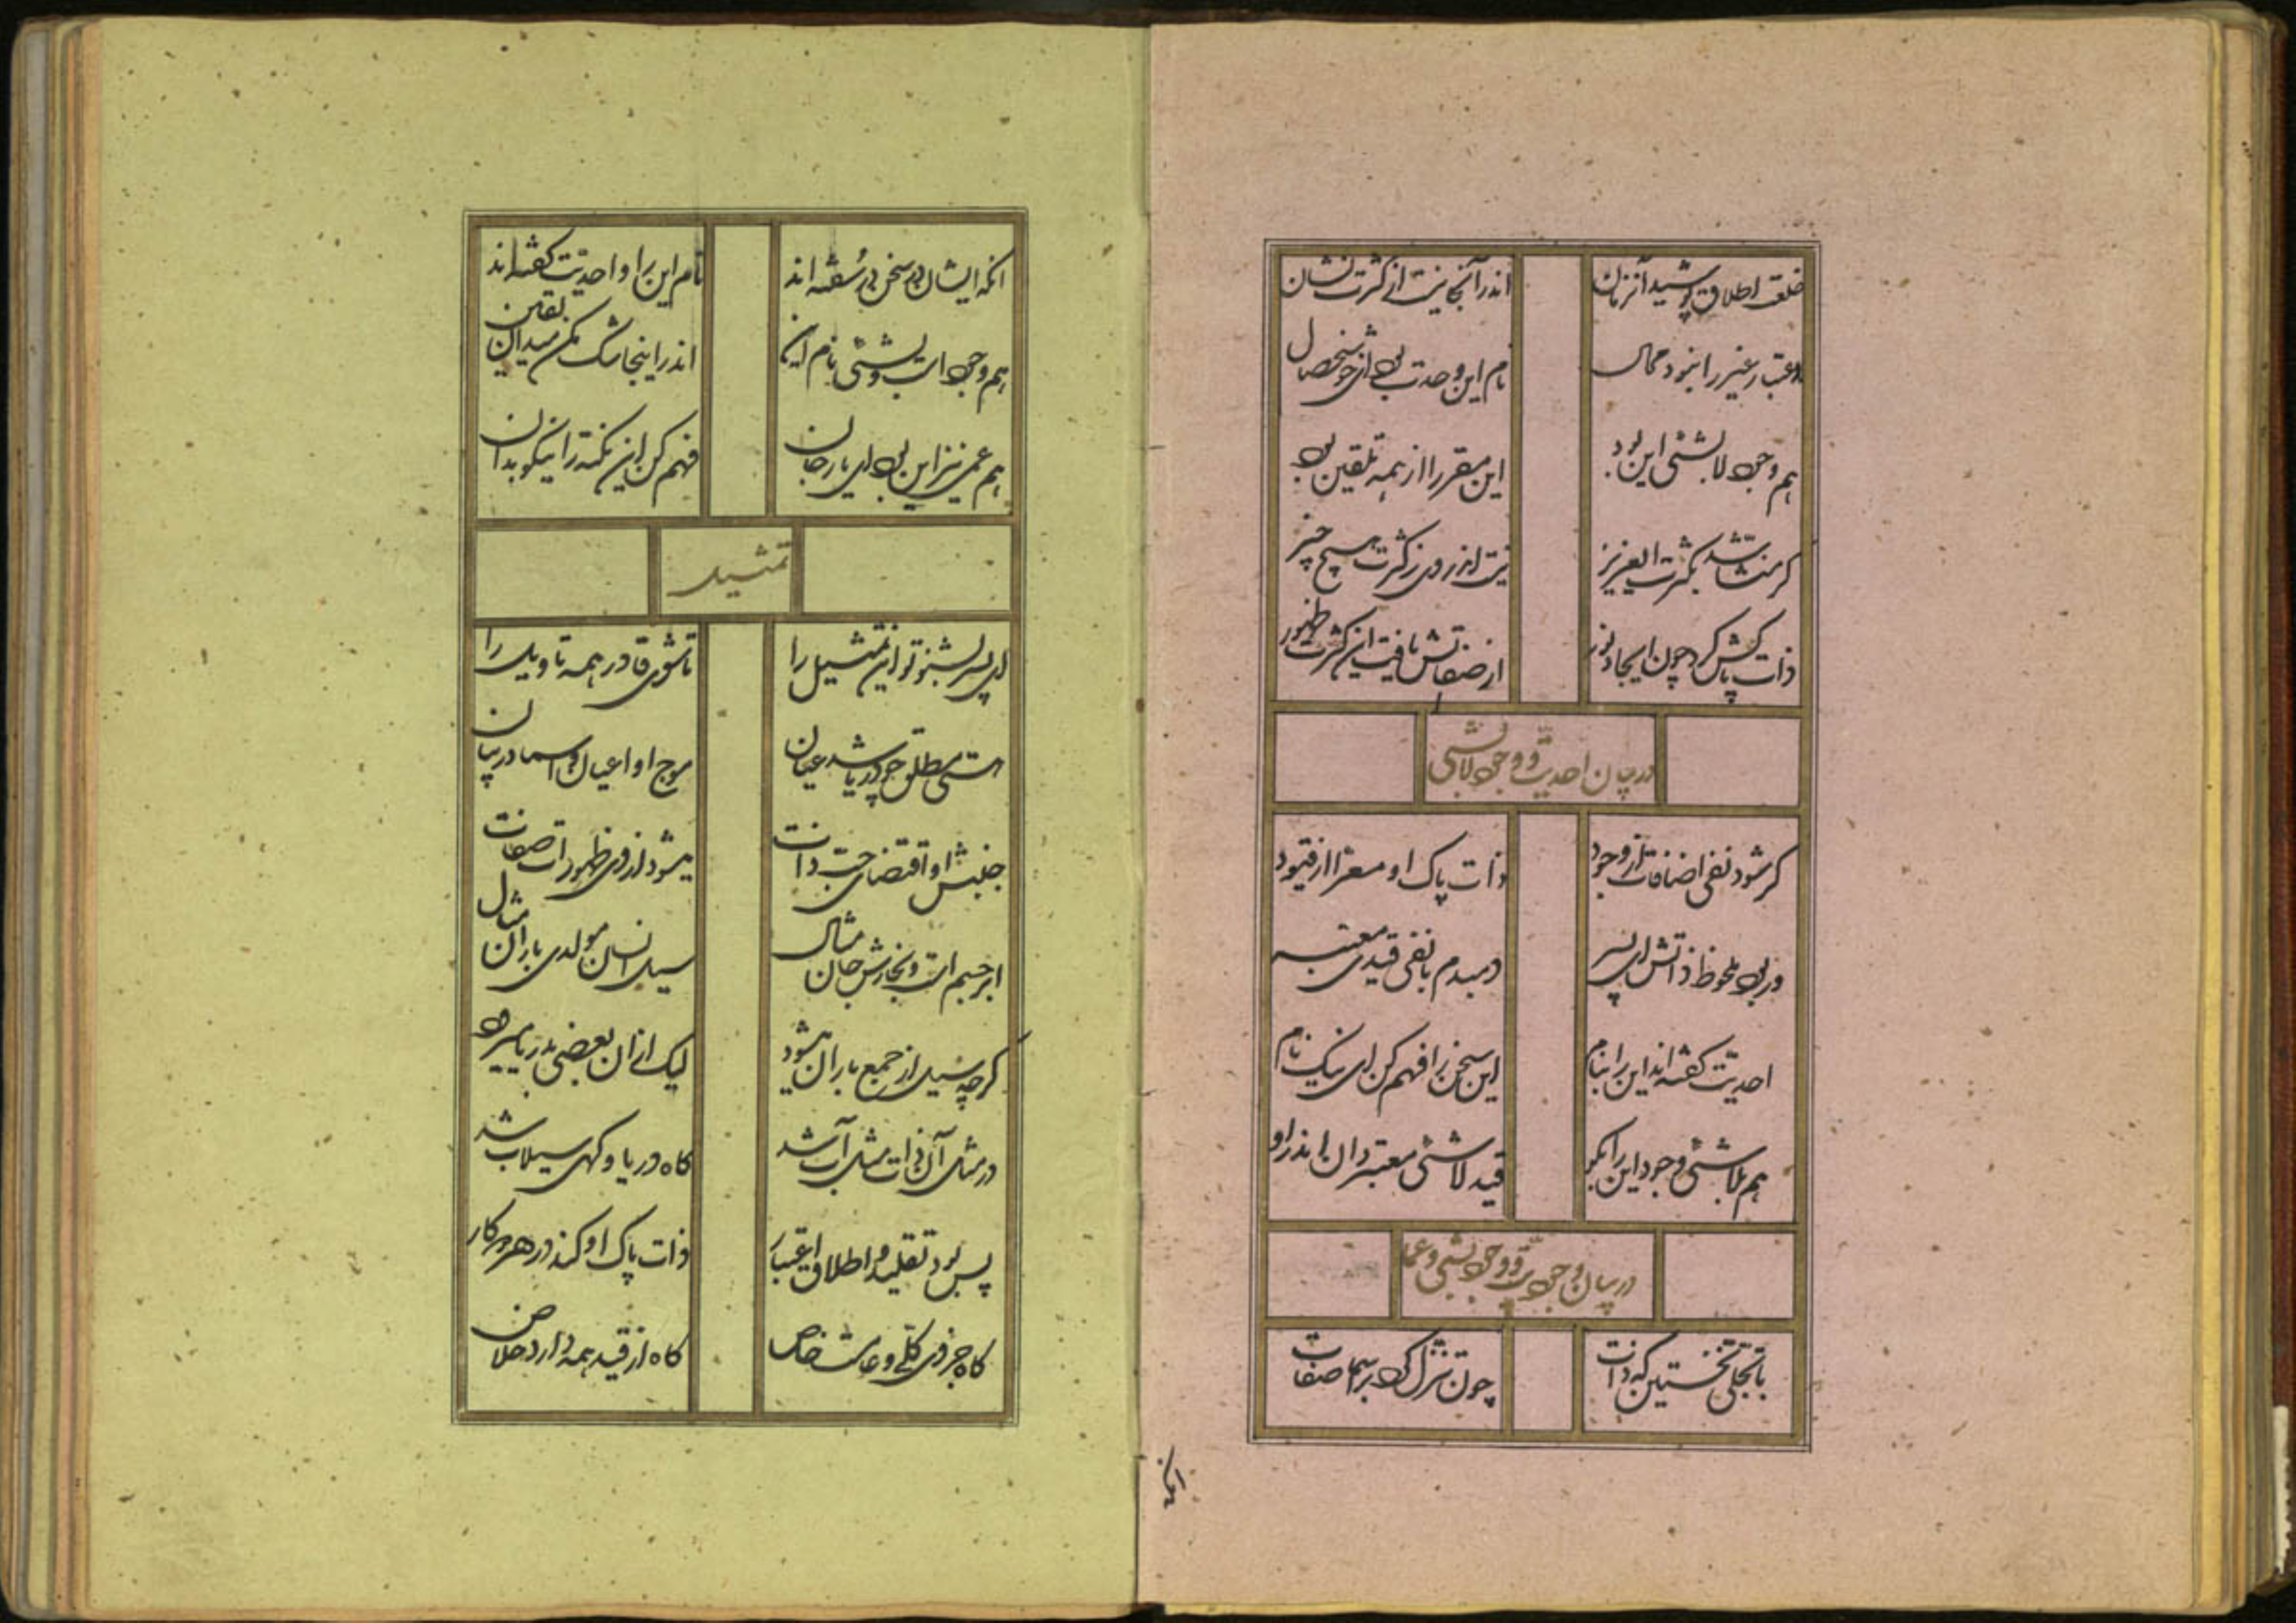 خلعت اطلاق پوشید آنزمان
اندر آنجا نیست از کثرت نشان
اعتبار غیر را نبود مجال
نام این وحدت بود ای خوشخصال
هم وجود لا بشی این بود
این مقرر را از همه تلقین بود
کر منشأ شد بکثرت ای عزیز
نیست اندر وی ز کثرت هیچ چیز
ذات پاکش کرد چون ایجاد نور
از صفاتش یافت این کثرت ظهور
در بیان احدیت و وجود لابشی
کر شود نفی اضافات از وجود
ذات پاک او معرا از قیود
ور بود ملحوظ ذاتش ای پسر
دمبدم با نفی قیدی معتبر
احدیت کفته اند این را بنام
این سخن را فهم کن ای نیک نام
هم بلا شئی وجود این را بکو
قید لا شئی معتبر دان اندر او
در بیان و وجود بشی و عما
با تجلی نخستین که ذات
چون تنزل کرد بر اسما صفات
آنکه ایشان در سخن در سفته اند
نام این را واحدیت کفته اند
هم وجود است و بشئی نام این
اندر اینجا شک مکن میدان یقین
هم عمی نیز این بود ای یار جان
فهم کن این نکته را نیکو بدان
تمثیل
ای پسر بشنو تو این تمثیل را
تا شوی قادر همه تاویل را
هستی مطلق چو دریا شد عیان
موج او اعیان و اسما در بیان
جنبش او اقتضای حب ذات
میشود از وی ظهورات صفات
ابر جسم است و بخارش جان مثال
سیل انسان مولدی باران مثال
کرچه سیل از جمع باران میشود
لیک از آن بعضی بدریا میرود
در مثال آن ذات مثل آب شد
کاه دریا و کهی سیلاب شد
پس بود تقلید و اطلاق اعتبار
ذات پاک او کند در هر دو کار
کاه جزوی کلی و عامست خاص
کاه از قید همه دارد خلاص